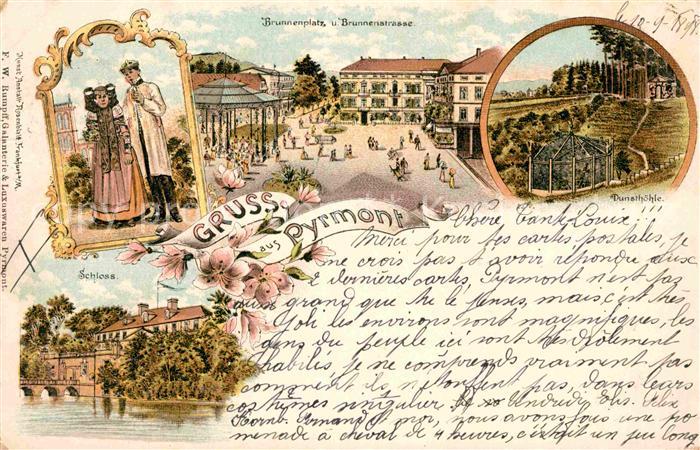 Brunnenplatz u. Brunnenstrasse.
le 10-9-
Kunst Anstalt Rosenblatt, Frankfurt a/M.
F. W. Rumpff, Galanterie & Luxuswaren Pyrmont.
Dunsthöhle.
GRUSS
aus
Pyrmont
Schloss.
Chère Tant Louix !!!
Merci pour tes cartes postales, je
ne crois pas t avoir répondu aux
2 dernières cartes, Pyrmont n'est pas
aussi grand que tu le penses, mais, c'est très
joli les environs sont magnifiques, les
gens du peuple ici sont très drôlement
habilés, je ne comprends vraiment pas
comment ils n'étouffent pas, dans leurs
costumes singulier Vendredi
et moi, nous avons fais une pro
menade à cheval de 4 heures, c'était un peu long